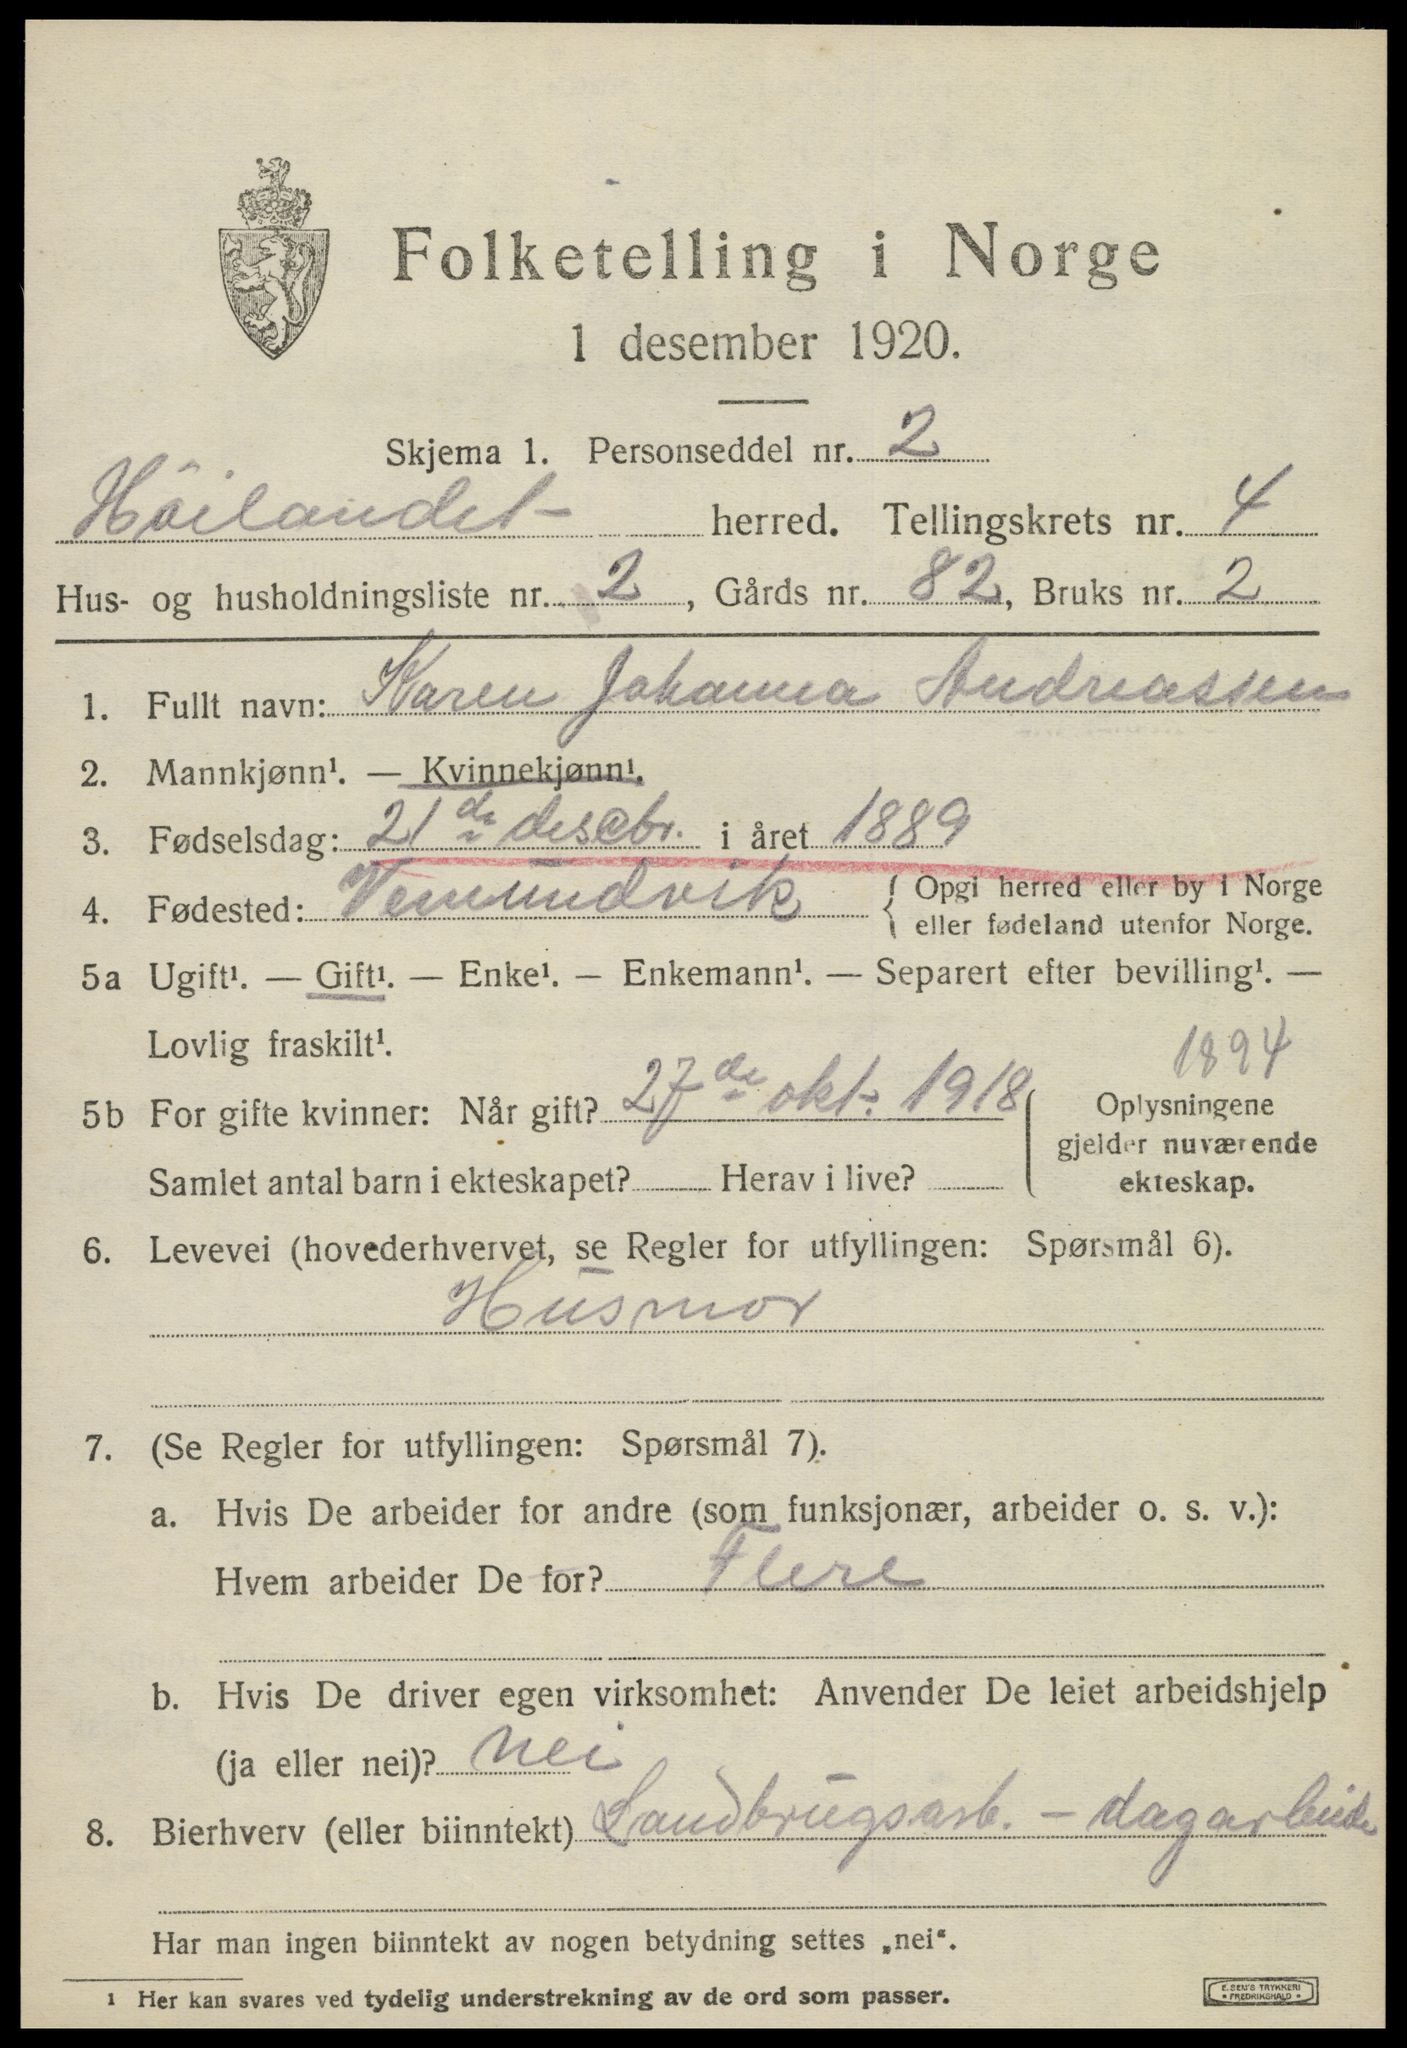 Folketelling i Norge
1 desember 1920.
Skjema 1. Personseddel nr. 2
Höilandet herred. Tellingskrets nr. 4
Hus- og husholdningsliste nr. 2, Gårds nr. 82, Bruks nr. 2
1. Fullt navn: Karen Johanna Andreassen
2. Mannkjønn¹. — Kvinnekjønn¹.
3. Fødselsdag: 21de desebr. i året 1889
4. Fødested: Vemundvik { Opgi herred eller by i Norge
eller fødeland utenfor Norge.
5a Ugift¹. — Gift¹. — Enke¹. — Enkemann¹. — Separert efter bevilling¹. —
Lovlig fraskilt¹.
1894
5b For gifte kvinner: Når gift? 27de okt. 1918 { Oplysningene
gjelder nuværende
Samlet antal barn i ekteskapet? Herav i live? ekteskap.
6. Levevei (hovederhvervet, se Regler for utfyllingen: Spørsmål 6).
Husmor
7. (Se Regler for utfyllingen: Spørsmål 7).
a. Hvis De arbeider for andre (som funksjonær, arbeider o. s. v.):
Hvem arbeider De for? Flere
b. Hvis De driver egen virksomhet: Anvender De leiet arbeidshjelp
(ja eller nei)? nei
8. Bierhverv (eller biinntekt) Landbrugsarb. – dagarbeide
Har man ingen biinntekt av nogen betydning settes „nei".
1 Her kan svares ved tydelig understrekning av de ord som passer.
E. SEM'S TRYKKERI
• FREDRIKSHALD •